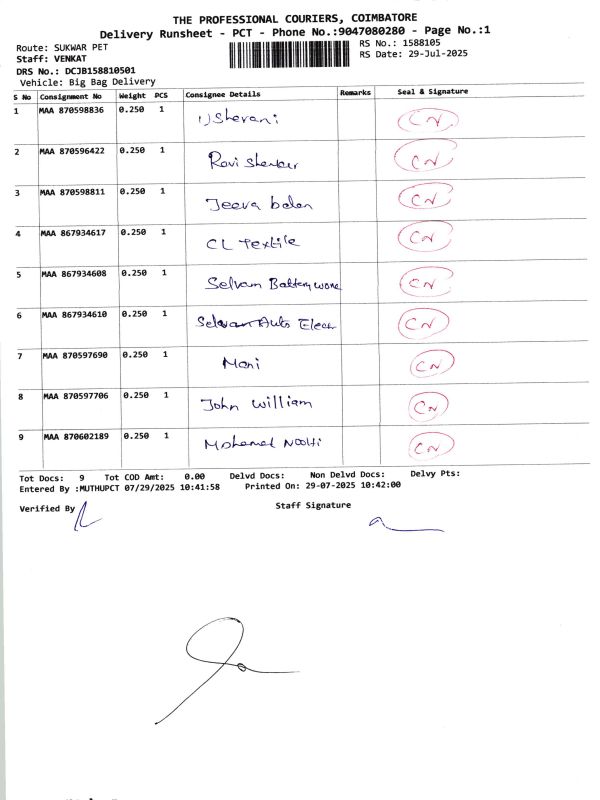 THE PROFESSIONAL COURIERS, COIMBATORE
Delivery Runsheet - PCT - Phone No.:9047080280 - Page No.:1
Route: SUKWAR PET
RS No.: 1588105
Staff: VENKAT
RS Date: 29-Jul-2025
DRS No.: DCJB158810501
Vehicle: Big Bag Delivery
S No Consignment No Weight PCS Consignee Details Remarks Seal & Signature
1 MAA 870598836 0.250 1 CN
2 MAA 870596422 0.250 1 Ravi Shenker CN
3 MAA 870598811 0.250 1 Jeeva balan CN
4 MAA 867934617 0.250 1 CL Textile CN
5 MAA 867934608 0.250 1 Selvam Battery CN
6 MAA 867934610 0.250 1 Selvam Auto Elecr CN
7 MAA 870597690 0.250 1 Mani CN
8 MAA 870597706 0.250 1 John William CN
9 MAA 870602189 0.250 1 Mohamed CN
Tot Docs: 9 Tot COD Amt: 0.00 Delvd Docs: Non Delvd Docs: Delvy Pts:
Entered By :MUTHUPCT 07/29/2025 10:41:58 Printed On: 29-07-2025 10:42:00
Verified By Staff Signature